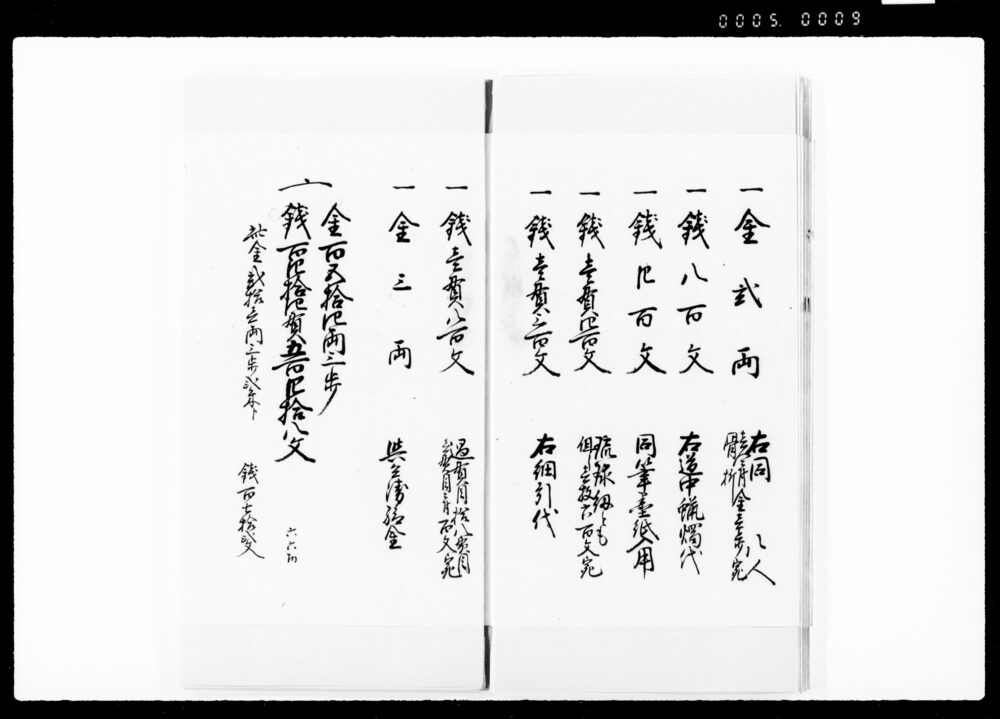 0005. 0009
一金弐両
右同 八人
骨折 金壱歩宛
一銭八百文
右道中蝋燭代
一銭四百文
同筆墨紙入用
一銭壱貫四百文
琉球細とも
但壱枚六百文宛
一銭壱貫三百文
右細引代
一銭壱貫八百文
過貫目拾八貫目
壱貫目ニ付百文宛
一金三両
金百五拾四両三歩
銭百四拾四貫五百四拾八文
此金弐拾壱両三歩弐朱ト
銭百七拾弐文